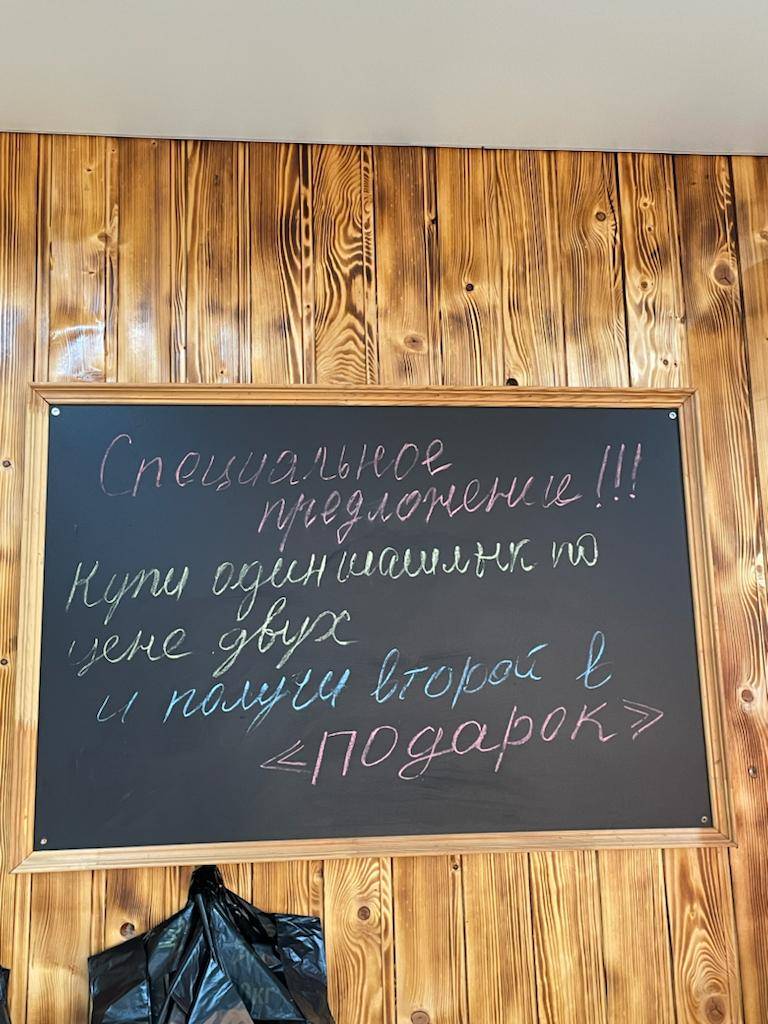 Специальное
предложение!!!
Купи один шашлык по
цене двух
и получи второй в
«Подарок»